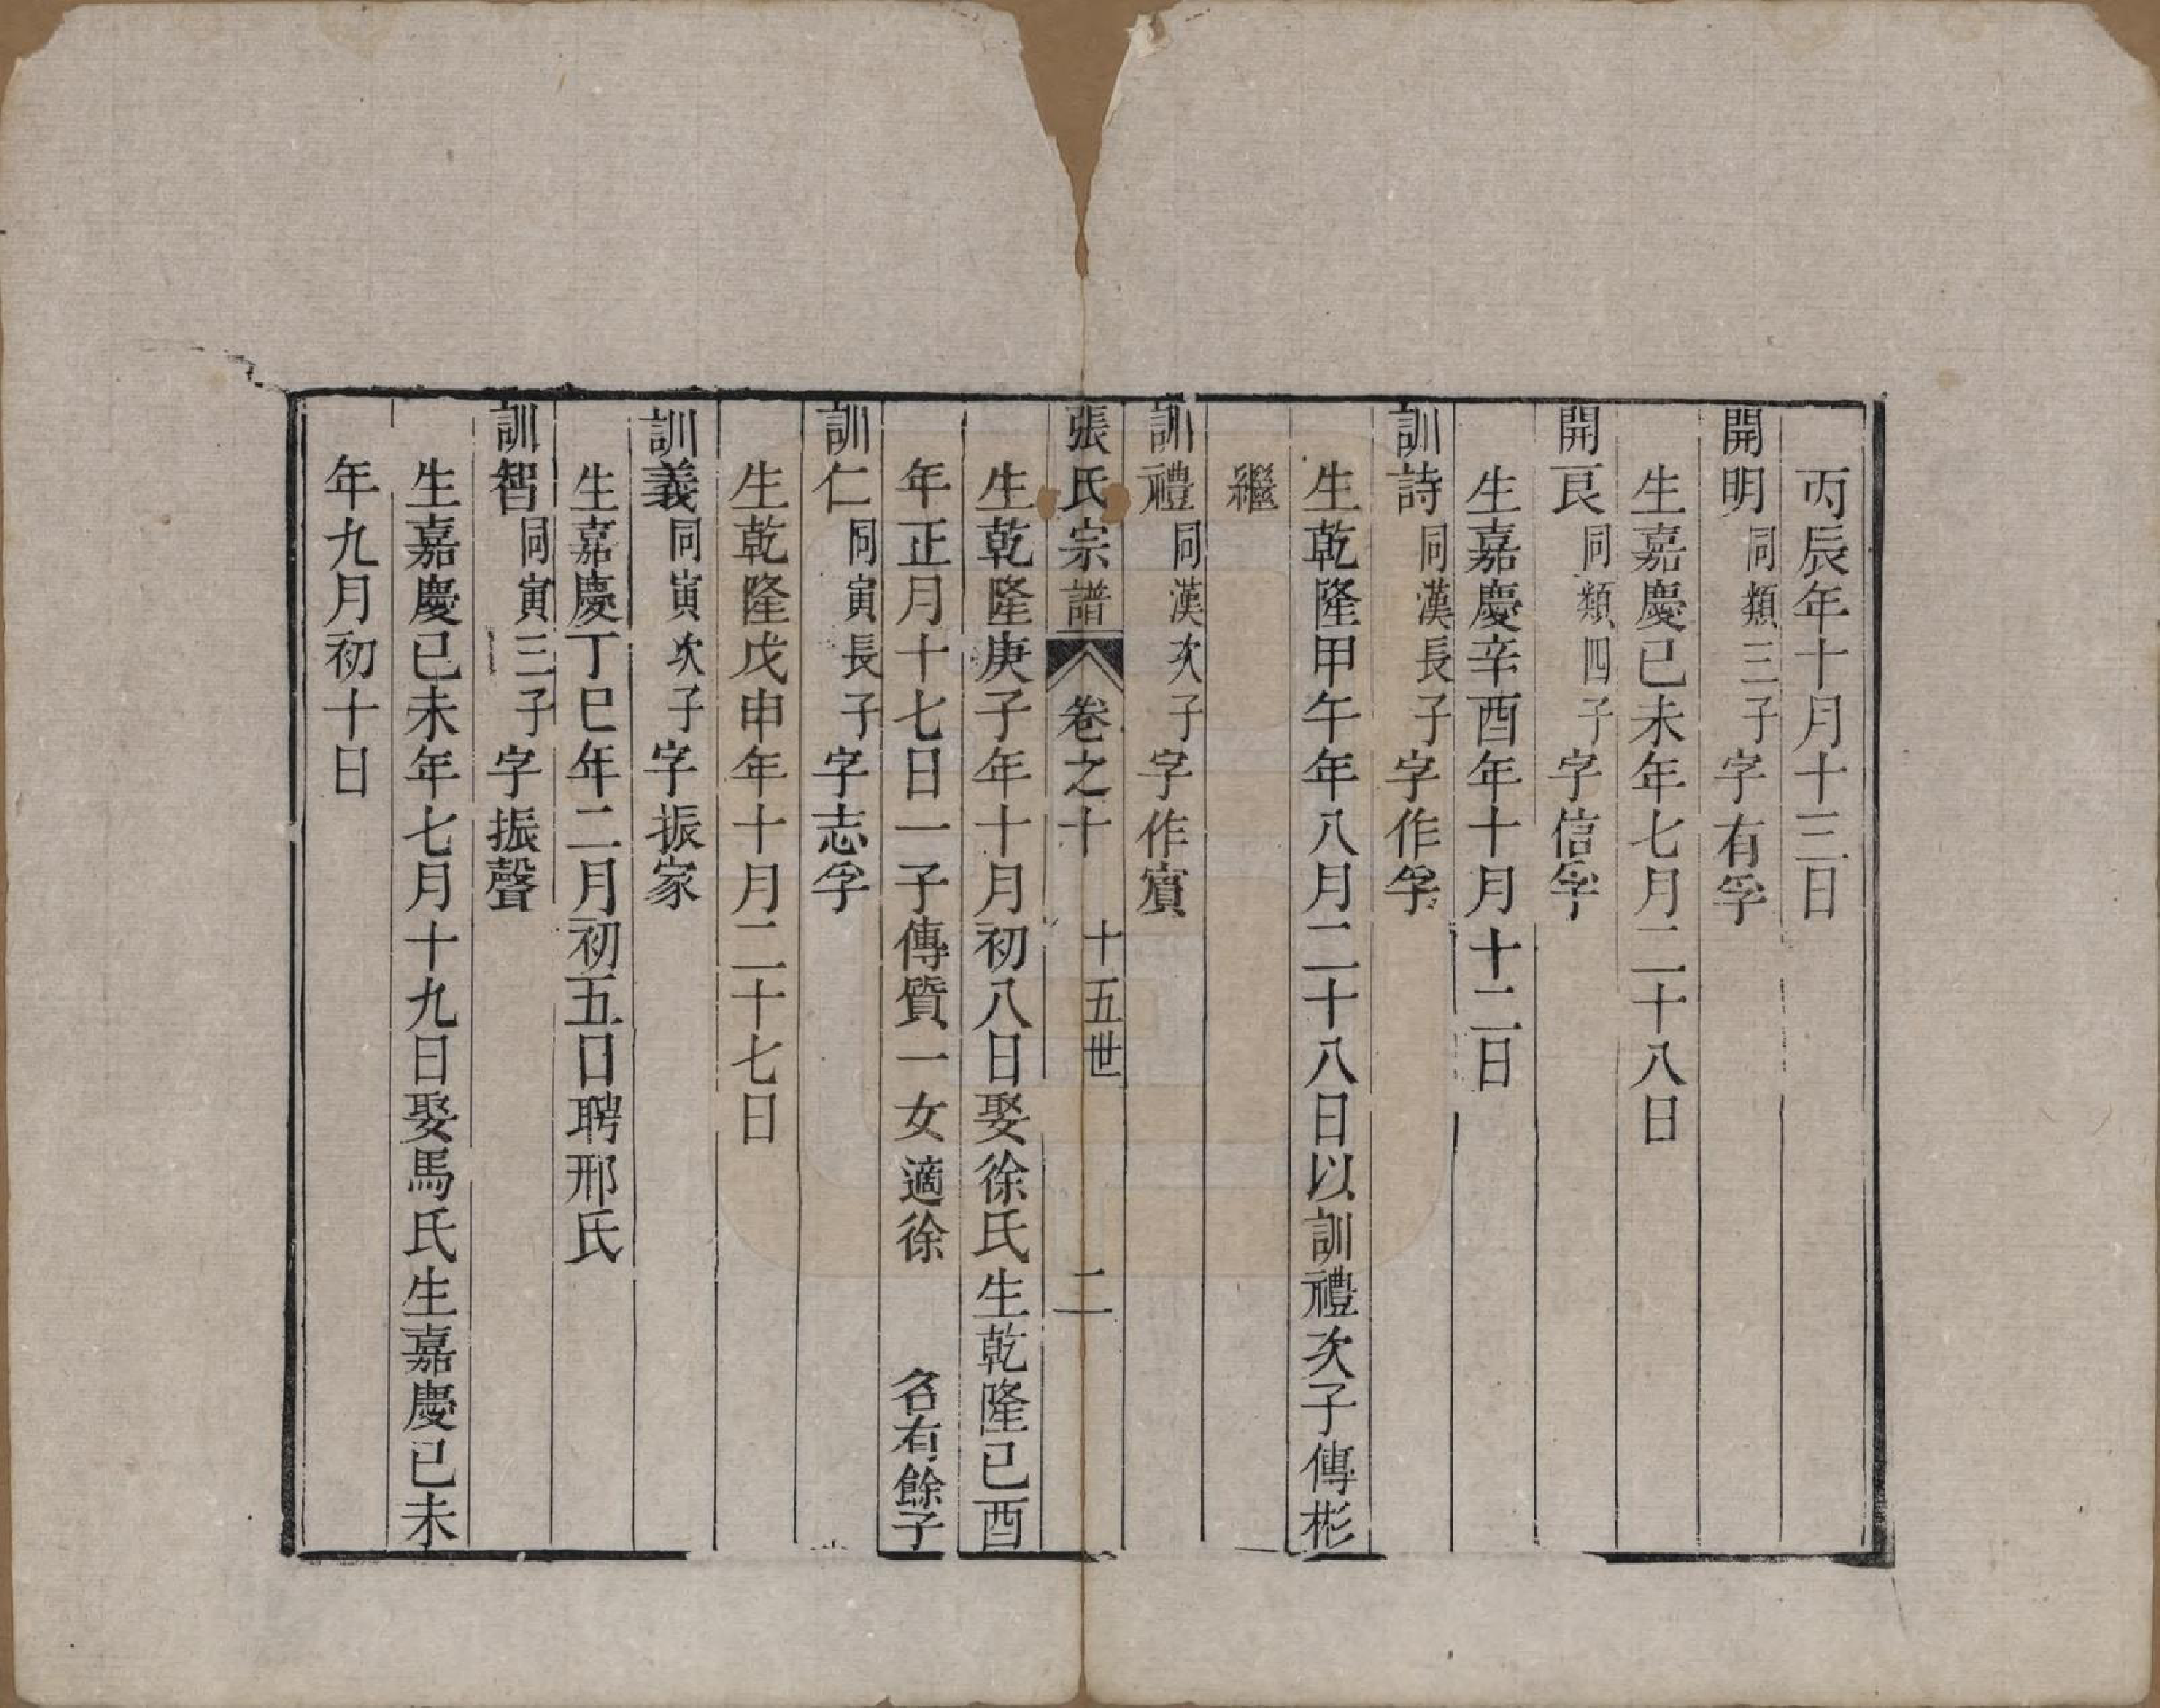 丙辰年十月十三日
開明同類三子字有孚
生嘉慶已未年七月二十八日
開良同類四子字信孚
生嘉慶辛酉年十月十二日
訓詩同漢長子字作孚
生乾隆甲午年八月二十八日以訓禮次子傳彬
繼
訓禮同漢次子字作賔
張氏宗譜 卷之十 十五世 二
生乾隆庚子年十月初八日娶徐氏生乾隆已酉
年正月十七日一子傳質一女適徐 名有餘子
訓仁同寅長子字志孚
生乾隆戊申年十月二十七日
訓義同寅次子字振家
生嘉慶丁巳年二月初五日聘邢氏
訓智同寅三子字振聲
生嘉慶已未年七月十九日娶馬氏生嘉慶已未
年九月初十日